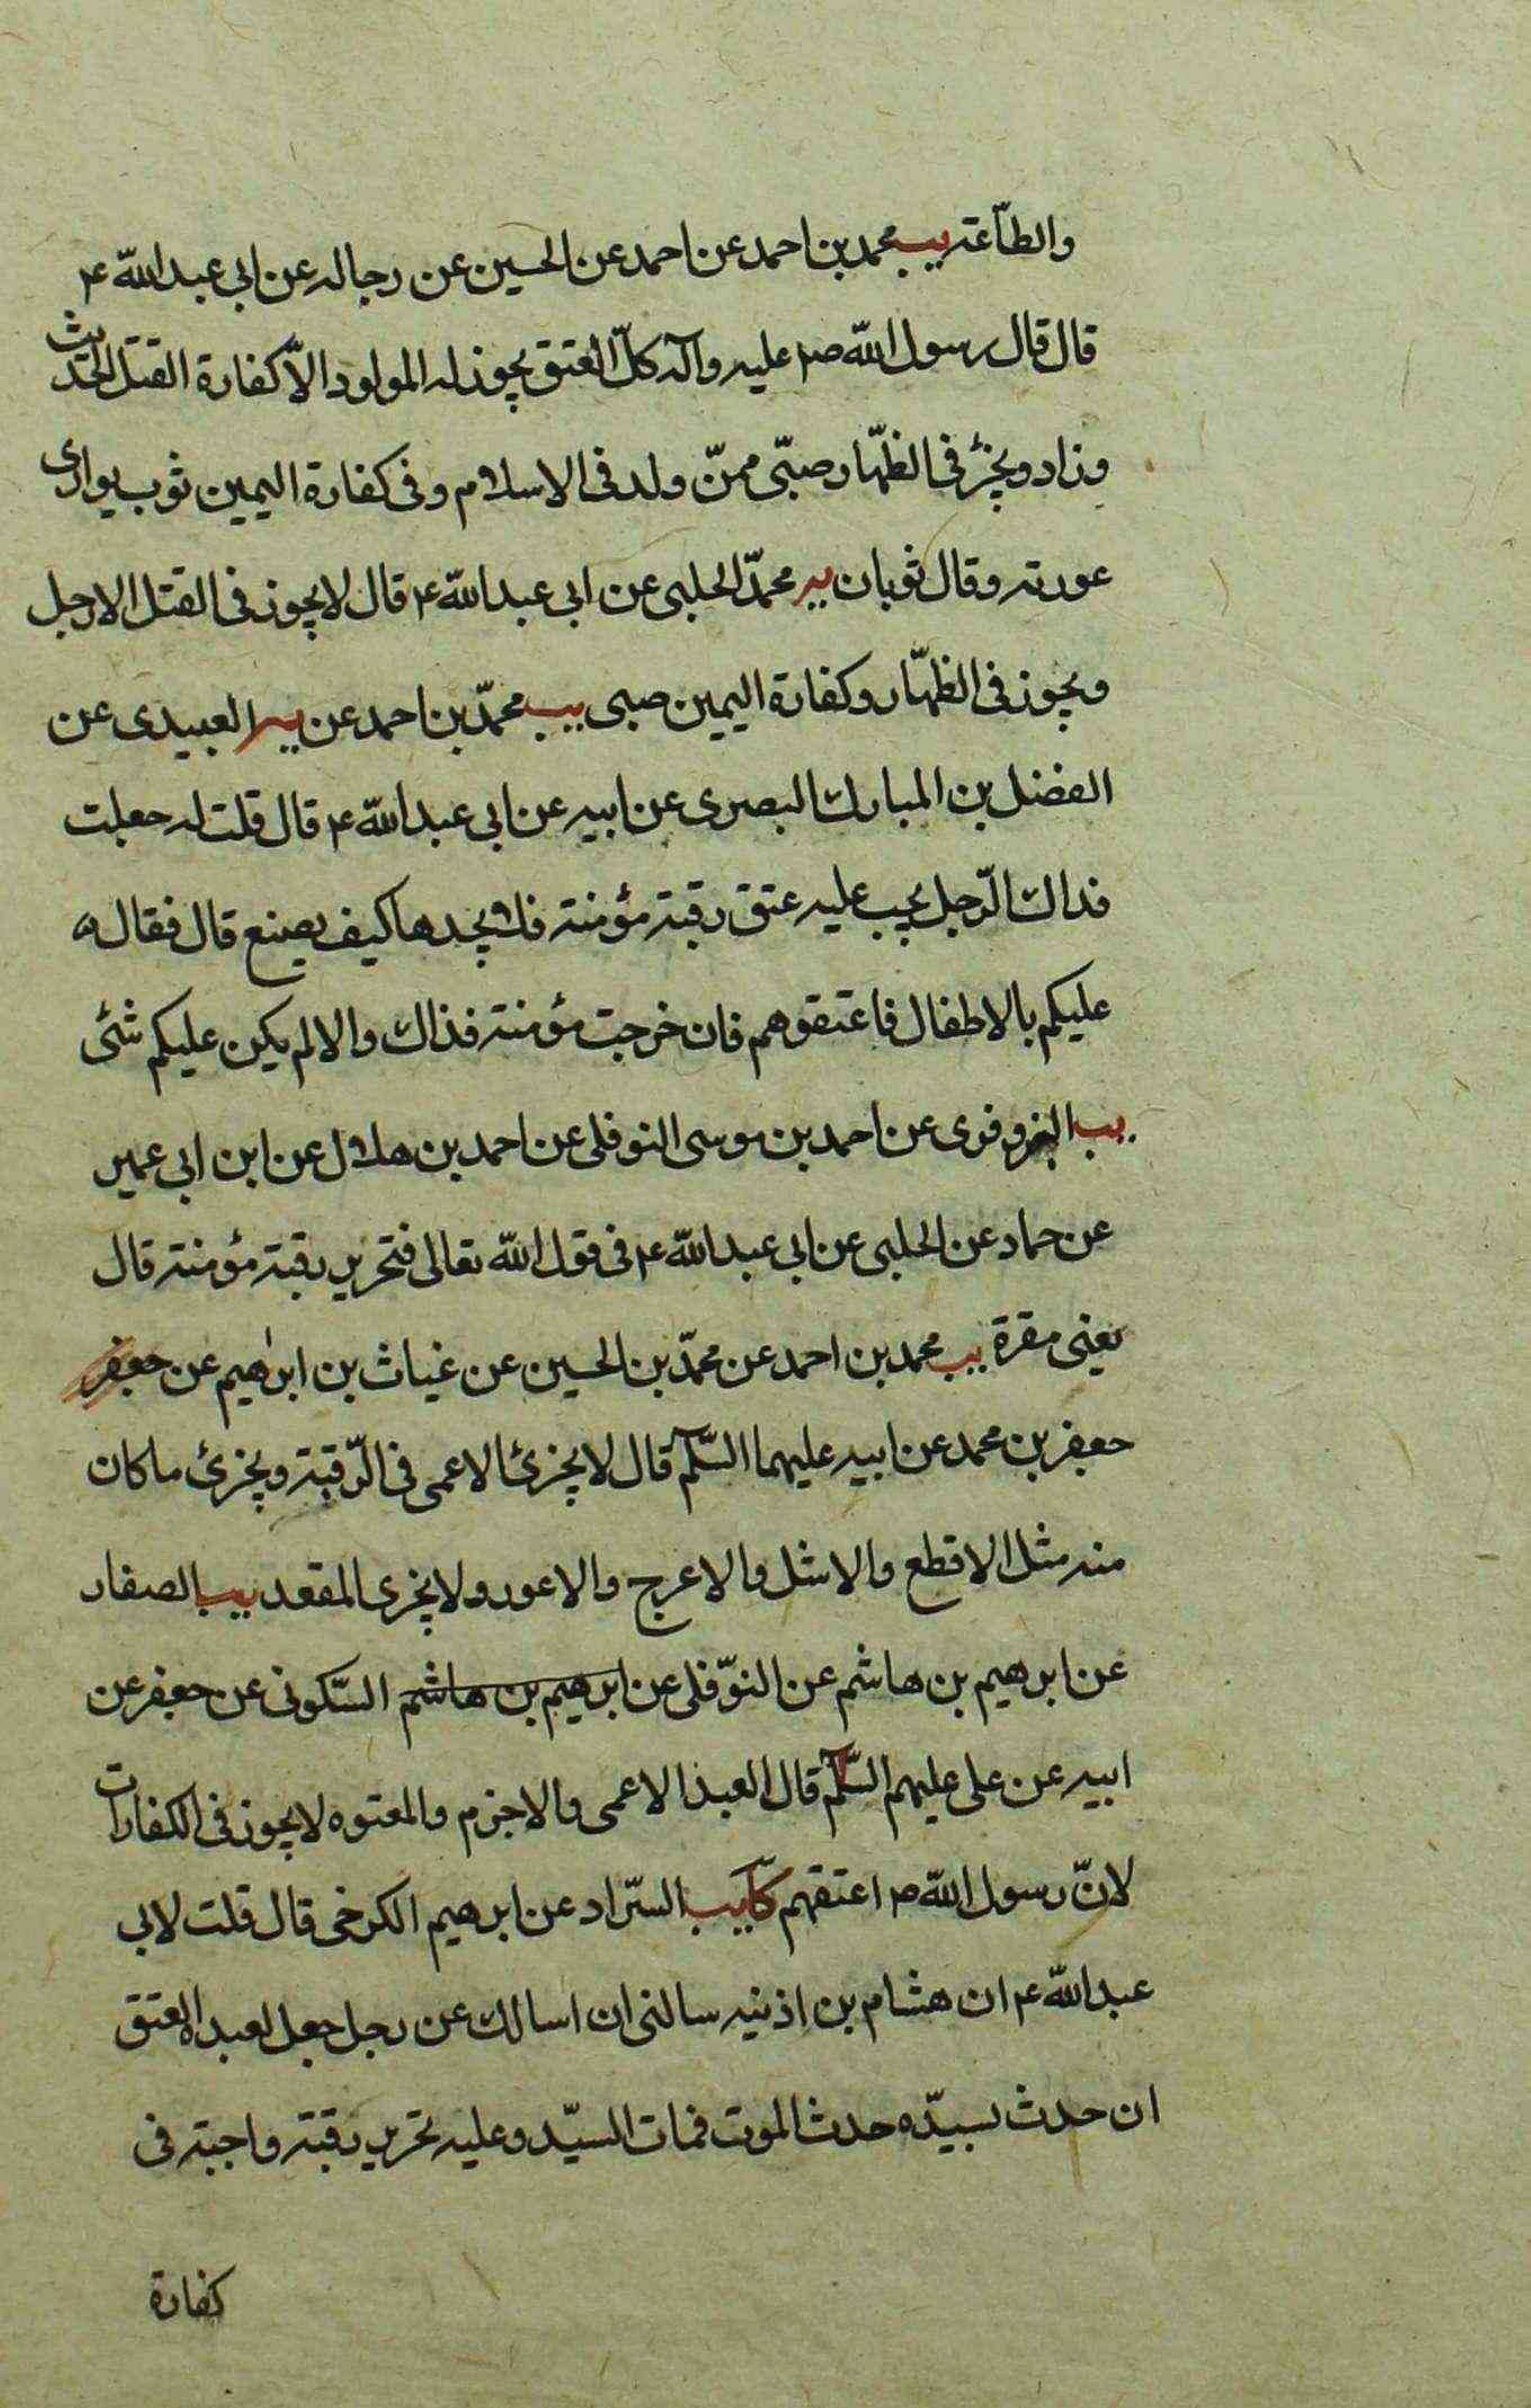 والطاّعته يب محمد بن احمد عن احمد عن الحسين عن رجاله عن ابي عبد اللّه ع
قال قال رسول اللّه ص عليه وآله كلّ العتق يجوز له المولود الاّ كفارة القتل الحديث
وزاد ويجزئ في الظهّار صبّي ممنّ ولد في الاسلام وفي كفارة اليمين ثوب يوارى
عورته وقال ثوبان ير محمّد الحلبي عن ابي عبد اللّه ع قال لا يجوز في القتل الا رجل
ويجوز في الظهّار وكفارة اليمين صبى يب محمّد بن احمد عن العبيدى عن
الفضل بن المبارك البصرى عن ابيه عن ابي عبد اللّه ع قال قلت له جعلت
فداك الرّجل يجب عليه عتق رقبة مؤمنته فلا يجدها كيف يصنع قال فقال
عليكم بالاطفال فاعتقوهم فان خرجت مؤمنته فذاك والا لم يكن عليكم شئى
يب البزوفرى عن احمد بن موسى النوفلى عن احمد بن هلال عن ابن ابى عمير
عن حماد عن الحلبى عن ابي عبد اللّه ع فى قول اللّه تعالى فتحرير رقبته مؤمنته قال
يعنى مقرة يب محمد بن احمد عن محمّد بن الحسين عن غياث بن ابرٰهيم عن جعفر
جعفر بن محمد عن ابيه عليهما السّلم قال لا يجزئ الاعمى فى الرّقبته ويجزئ ما كان
منه مثل الاقطع والاشل والاعرج والاعور ولا يجزى المقعد يب الصفار
عن ابرهيم بن هاشم عن النوّفلى عن ابرهيم بن هاشم السّكونى عن جعفر عن
ابيه عن على عليهم السّلم قال العبد الاعمى والاجزم والمعتوه لا يجوز فى الكفارات
لانّ رسول اللّه ص اعتقهم كا يب السّراد عن ابرهيم الكرخى قال قلت لابى
عبد اللّه ع ان هشام بن اذنيه سالنى ان اسالك عن رجل جعل لعبده العتق
ان حدث بسيّده حدث الموت فمات السيّد وعليه تحرير رقبته واجبته فى
كفارة